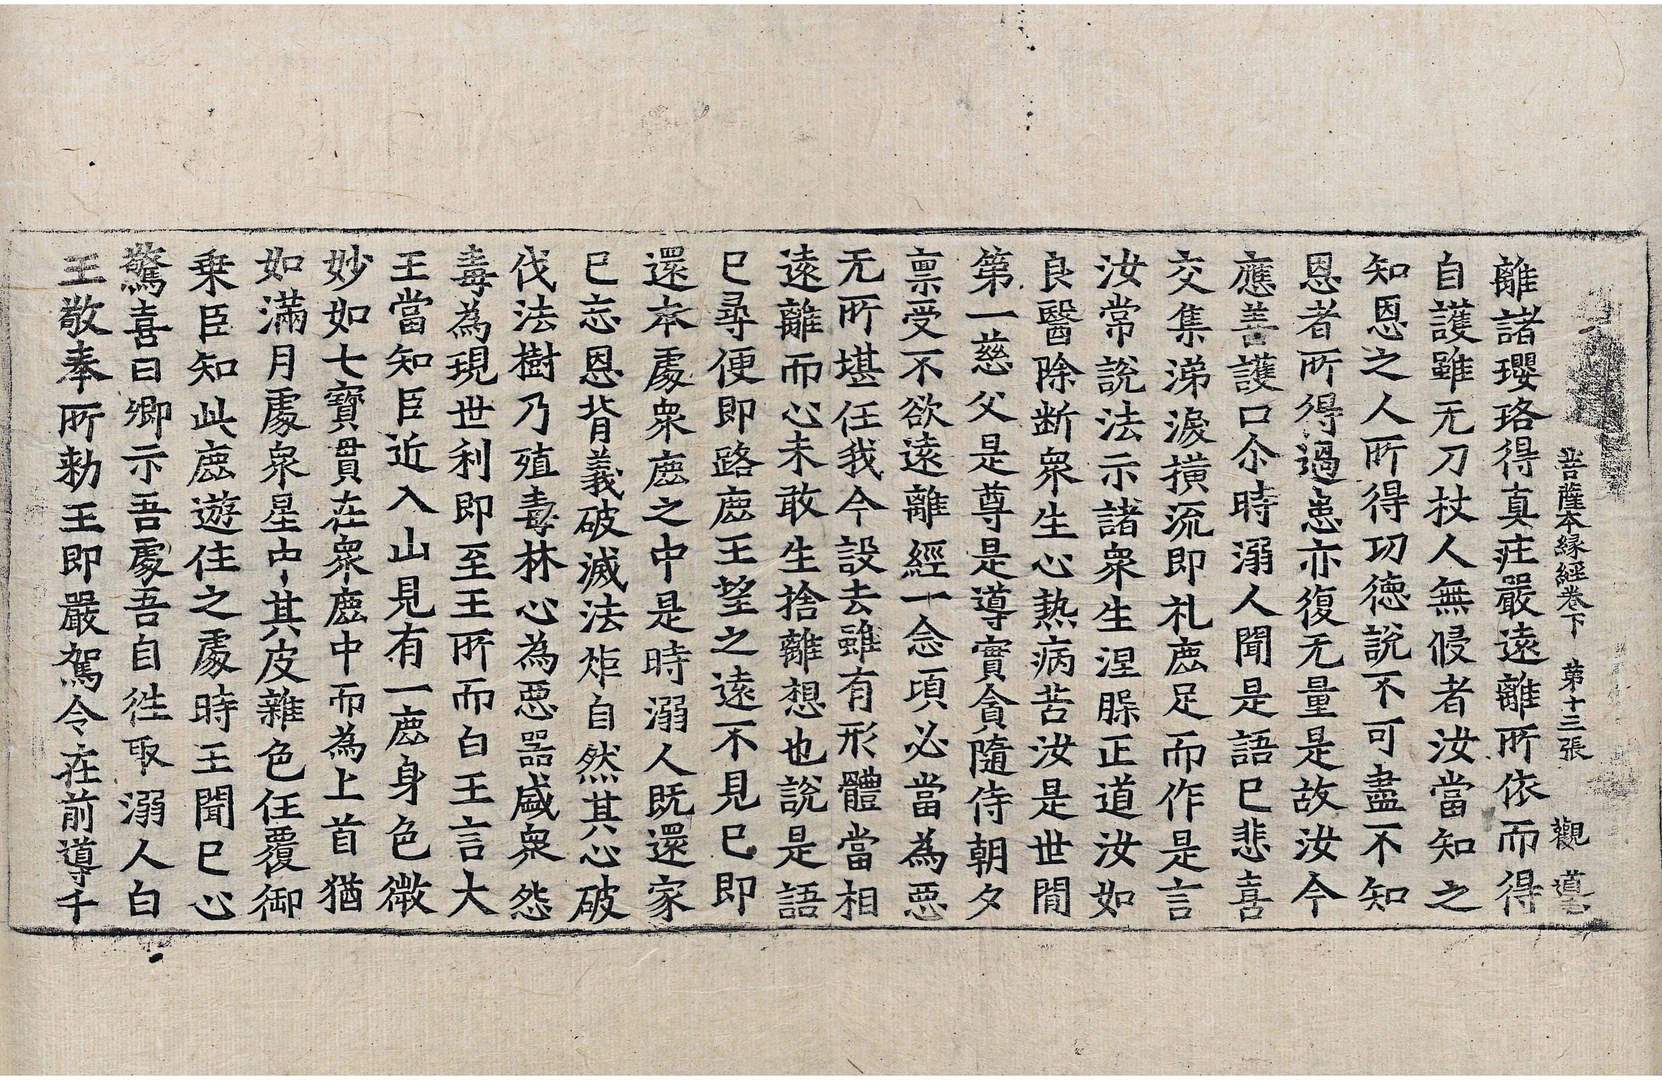 菩薩本縁經卷下　第十三張　觀
離諸瓔珞得真莊嚴遠離所依而得
自護雖无刀杖人無侵者汝當知之
知恩之人所得功徳說不可盡不知
恩者所得過患亦復无量是故汝今
應善護口尒時溺人聞是語已悲喜
交集涕淚橫流即礼鹿足而作是言
汝常說法示諸衆生涅槃正道汝如
良醫除断衆生心熱病苦汝是世間
第一慈父是尊是導實貪隨侍朝夕
禀受不欲遠離經一念頃必當為惡
无所堪任我今設去雖有形體當相
遠離而心未敢生捨離想也說是語
已尋便即路鹿王望之遠不見已即
還本處衆鹿之中是時溺人既還家
已忘恩背義破滅法炬自然其心破
伐法樹乃殖毒林心為惡器盛衆怨
毒為現世利即至王所而白王言大
王當知臣近入山見有一鹿身色微
妙如七寶貫在衆鹿中而為上首猶
如滿月處衆星中其皮雜色任覆御
乗臣知此鹿遊住之處時王聞已心
驚喜曰卿示吾處吾自往取溺人白
王敬奉所勑王即嚴駕令在前導千